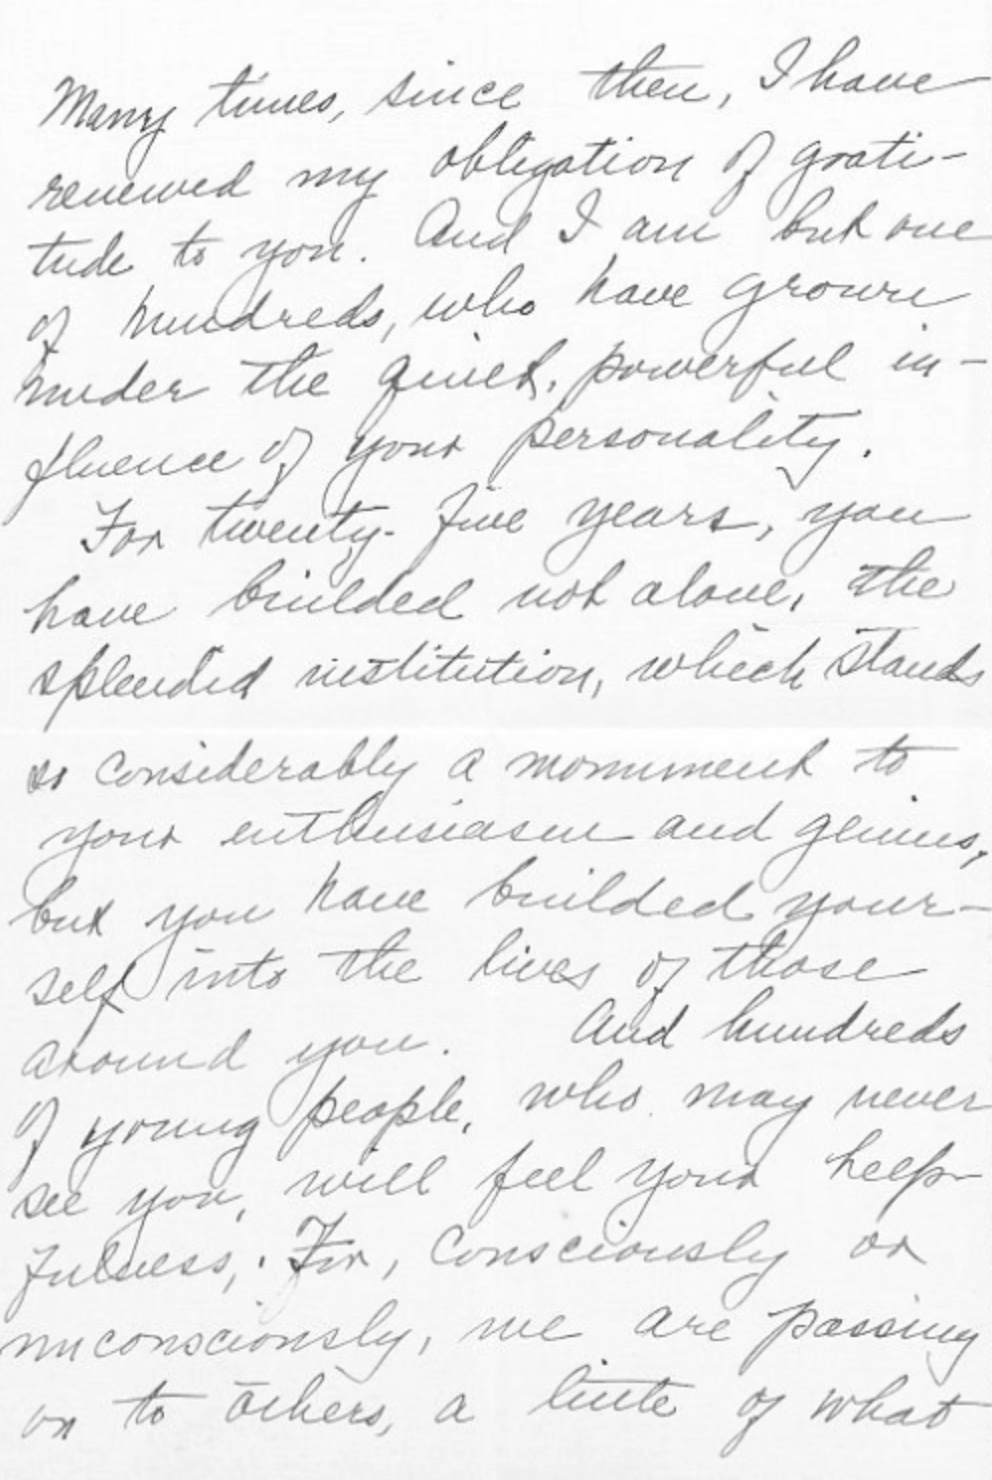 Many times, since then, I have
renewed my obligation of grati-
tude to you. And I am but one
of hundreds, who have grown
under the quiet, powerful in-
fluence of your personality.
For twenty-five years, you
have builded not alone, the
splendid institution, which stands
so considerably a monument to
your enthusiasm and genius,
but you have builded your-
self into the lives of those
around you. And hundreds
of young people, who may never
see you, will feel your help-
fulness,. For, consciously or
unconsciously, we are passing
on to others, a little of what